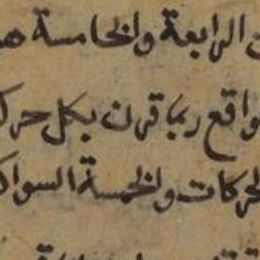 الرابعة والخامسة
واقع ربما قرن بكل
الحركات والخمسة السواك